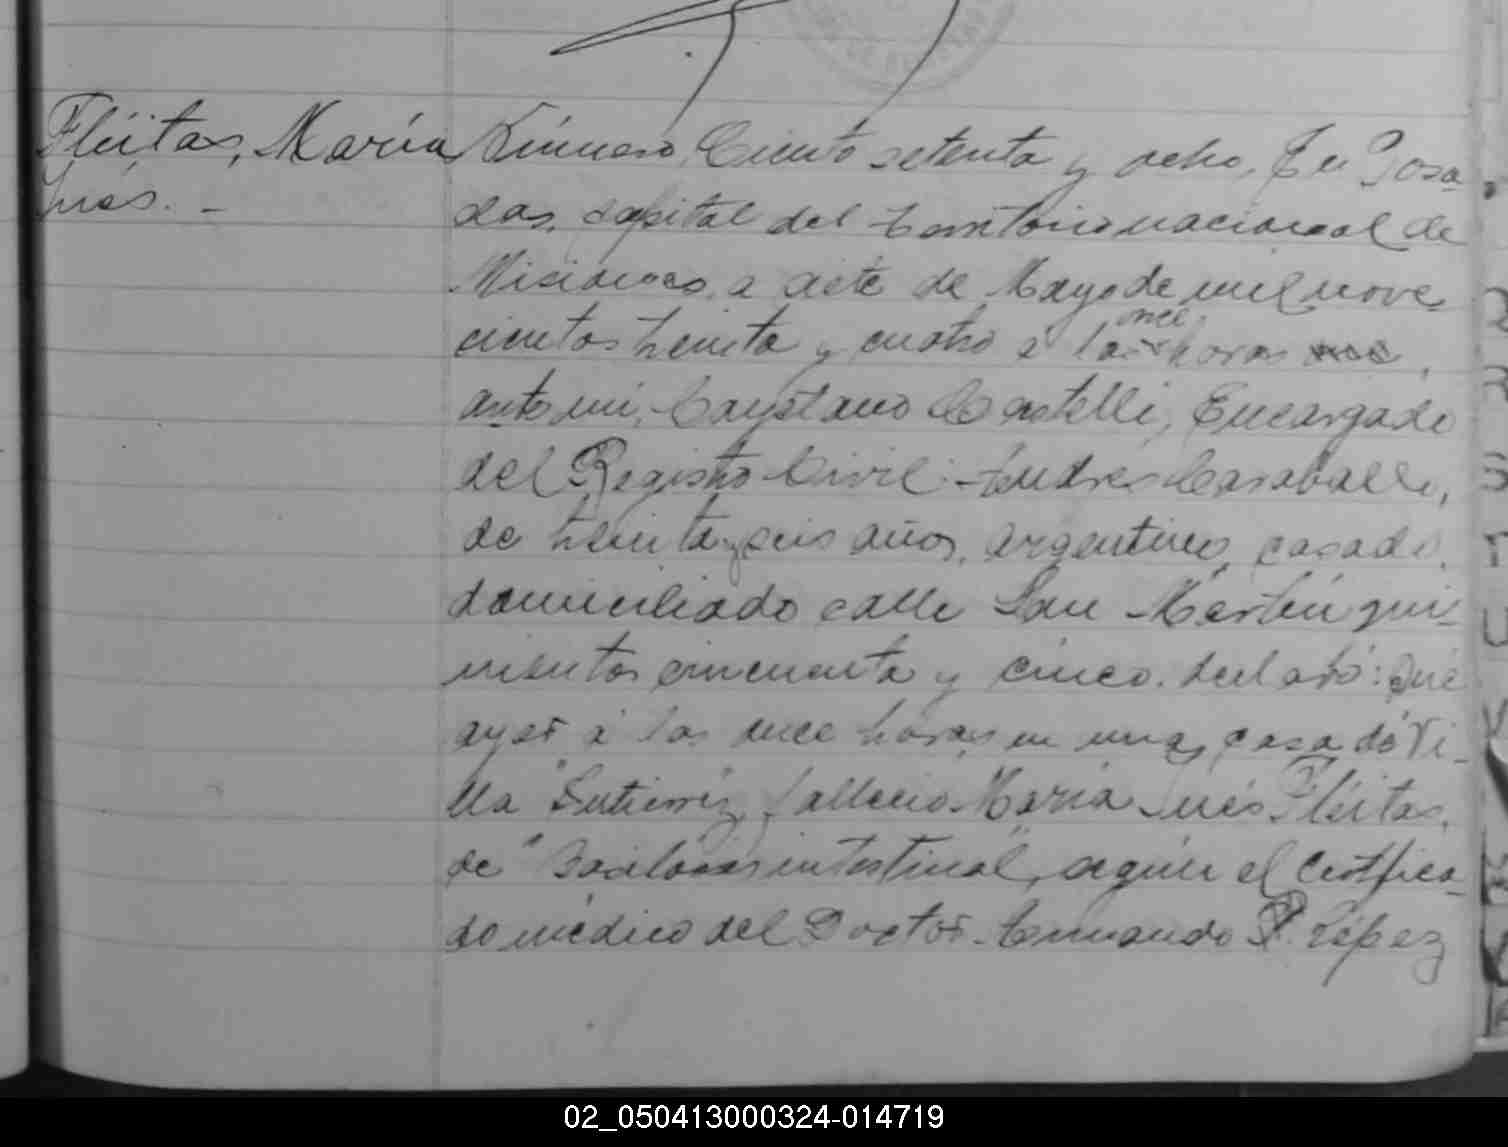 Fléitas, María
Inés. -
Número Ciento setenta y ocho. En Posa
das, capital del territorio nacional de
Misiones, a siete de Mayo de mil nove
cientos treinta y cuatro a las once horas
ante mí, Cayetano Castelli, Encargado
del Registro Civil: Andrés Caraballo,
de treinta y seis años, argentino, casado,
domiciliado calle San Martín qui-
nientos cincuenta y cinco. declaró: Que
ayer a las once horas en una casa de Vi-
lla Gutierrez falleció María Inés Fléitas,
de " intestinal", según el certifica-
do médico del Doctor Armando López
02_050413000324-014719